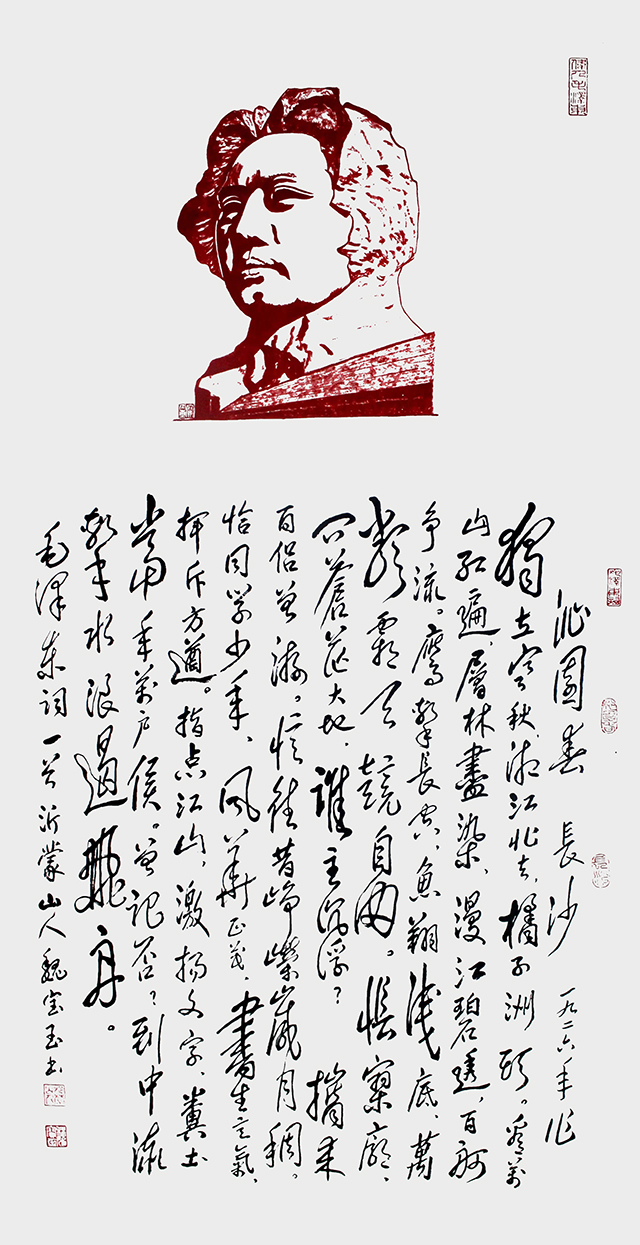 沁園春 長沙 一九二六年作
獨立寒秋，湘江北去，橘子洲頭。看萬
山紅遍，層林盡染，漫江碧透，百舸
争流。鷹擊長空，魚翔淺底，萬
類霜天競自由。悵寥廓，
问蒼茫大地，誰主沉浮？ 攜来
百侣曾游。憶往昔崢嶸歲月稠。
恰同学少年，风華正茂，書生意氣，
揮斥方遒。指点江山，激扬文字，糞土
當年萬户侯。曾記否？到中流
擊水浪遏飛舟。
毛澤东词一首 沂蒙山人魏宝玉书